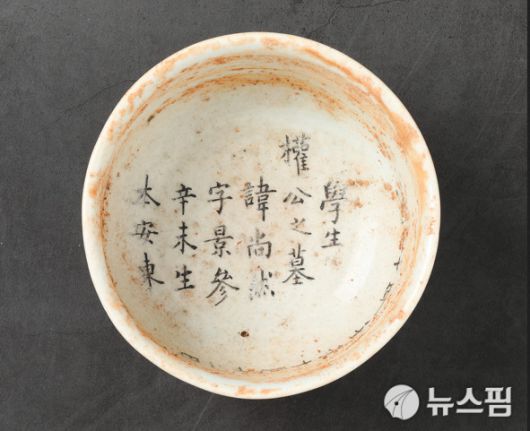 學生
權公之墓
諱尚
字景參
辛未生
本安東
뉴스핌